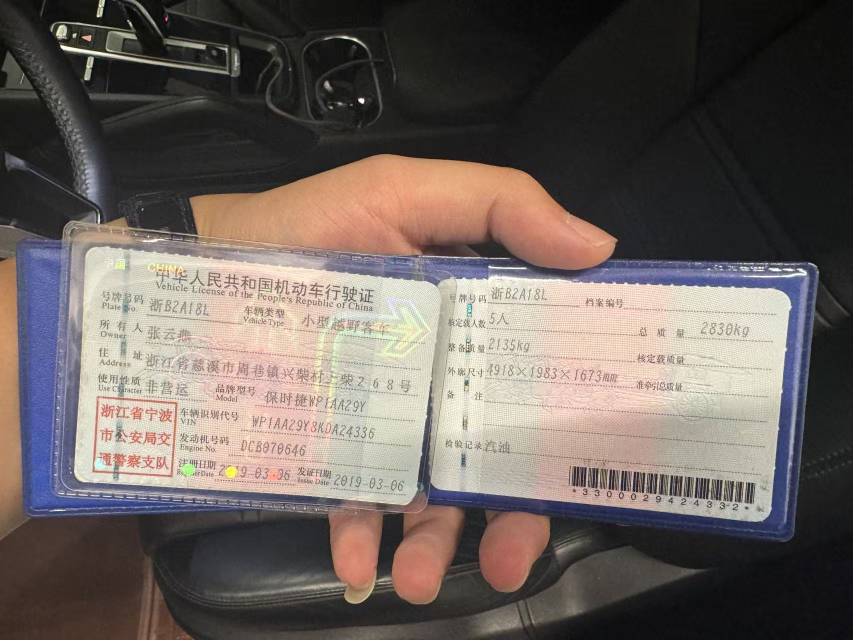 CHINA
中华人民共和国机动车行驶证
Vehicle License of the People's Republic of China
号牌号码 浙B2A18L 车辆类型 小型越野客车
Plate No. Vehicle Type
所有人 张云燕
Owner
住址 浙江省慈溪市周巷镇兴柴村上柴268号
Address
使用性质 非营运 品牌型号 保时捷WP1AA29Y
Use Character Model
浙江省宁波
市公安局交
通警察支队
车辆识别代号 WP1AA29Y8KDA24336
VIN
发动机号码 DCB070646
Engine No.
注册日期 2019-03-06 发证日期 2019-03-06
Register Date Issue Date
号牌号码 浙B2A18L 档案编号
核定载人数 5人 总质量 2830kg
整备质量 2135kg 核定载质量
外廓尺寸 4918×1983×1673mm 准牵引总质量
备注
检验记录 汽油
*3300029424332*